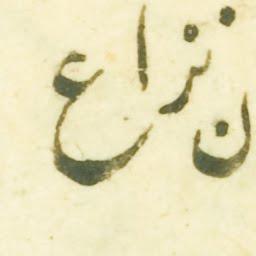 ن نزاع